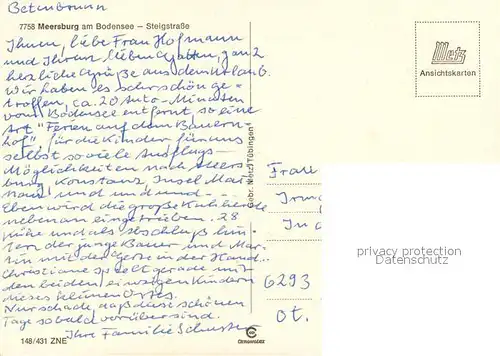 Betenbrunn
7758 Meersburg am Bodensee – Steigstraße
Ihnen, liebe Frau Hofmann
und Ihrem lieben Gatten, ganz
herzliche Grüße aus dem Urlaub.
Wir haben es sehr schön ge-
troffen, ca. 20 Auto-Minuten
vom Bodensee entfernt, so eine
Art "Ferien auf dem Bauern-
hof", für die Kinder für uns
selbst so viele Ausflugs-
Möglichkeiten nach Meers-
burg, Konstanz, Insel Mai-
nau, und und und –
Eben wird die große Kuhherde
nebenan eingetrieben. 28
Kühe und als Abschluß hin-
tern der junge Bauer und Mar-
tin mit der Gerte in der Hand...
Christiane spielt gerade mit
den beiden einzigen Kindern
dieses kleinen Ortes.
Nur schade, daß diese schönen
Tage so bald vorüber sind.
Ihre Familie Schuster
148/431 ZNE
Gebr. Metz, Tübingen
Metz
Ansichtskarten
Frau
In
6293
privacy protection
AnsichtskartenCenter.de